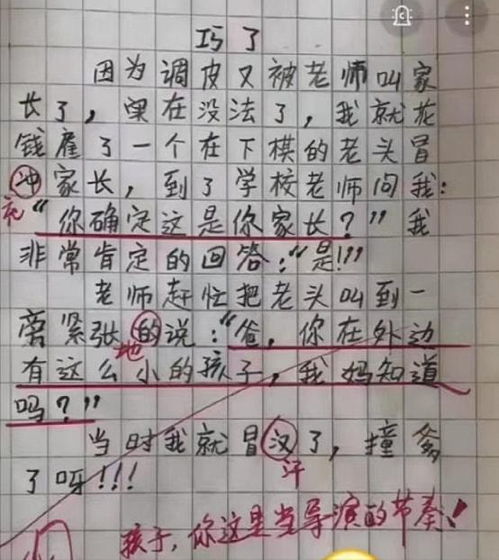 巧了
因为调皮又被老师叫家
长了，实在没法了，我就花
钱雇了一个在下棋的老头冒
冲家长，到了学校老师问我：
充
“你确定这是你家长？”我
非常肯定的回答：“是!!!
老师赶忙把老头叫到一
旁紧张的说：“爸，你在外边
地
有这么小的孩子，我妈知道
吗？”
当时我就冒汉了，撞爹
汗
了呀!!!
孩子，你这是当导演的节奏！